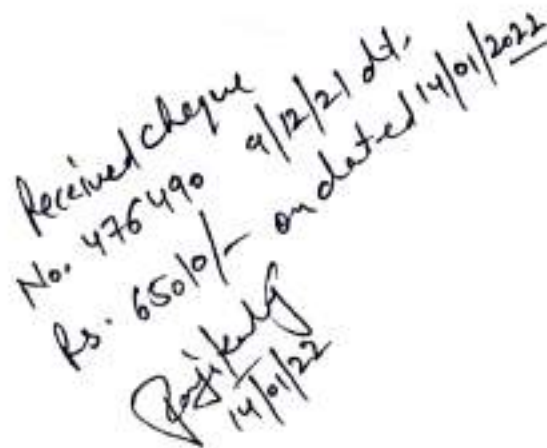 Received cheque
No. 476490 9/12/21 dt.
Rs. 6500/- on dated 14/01/2022
14/01/22